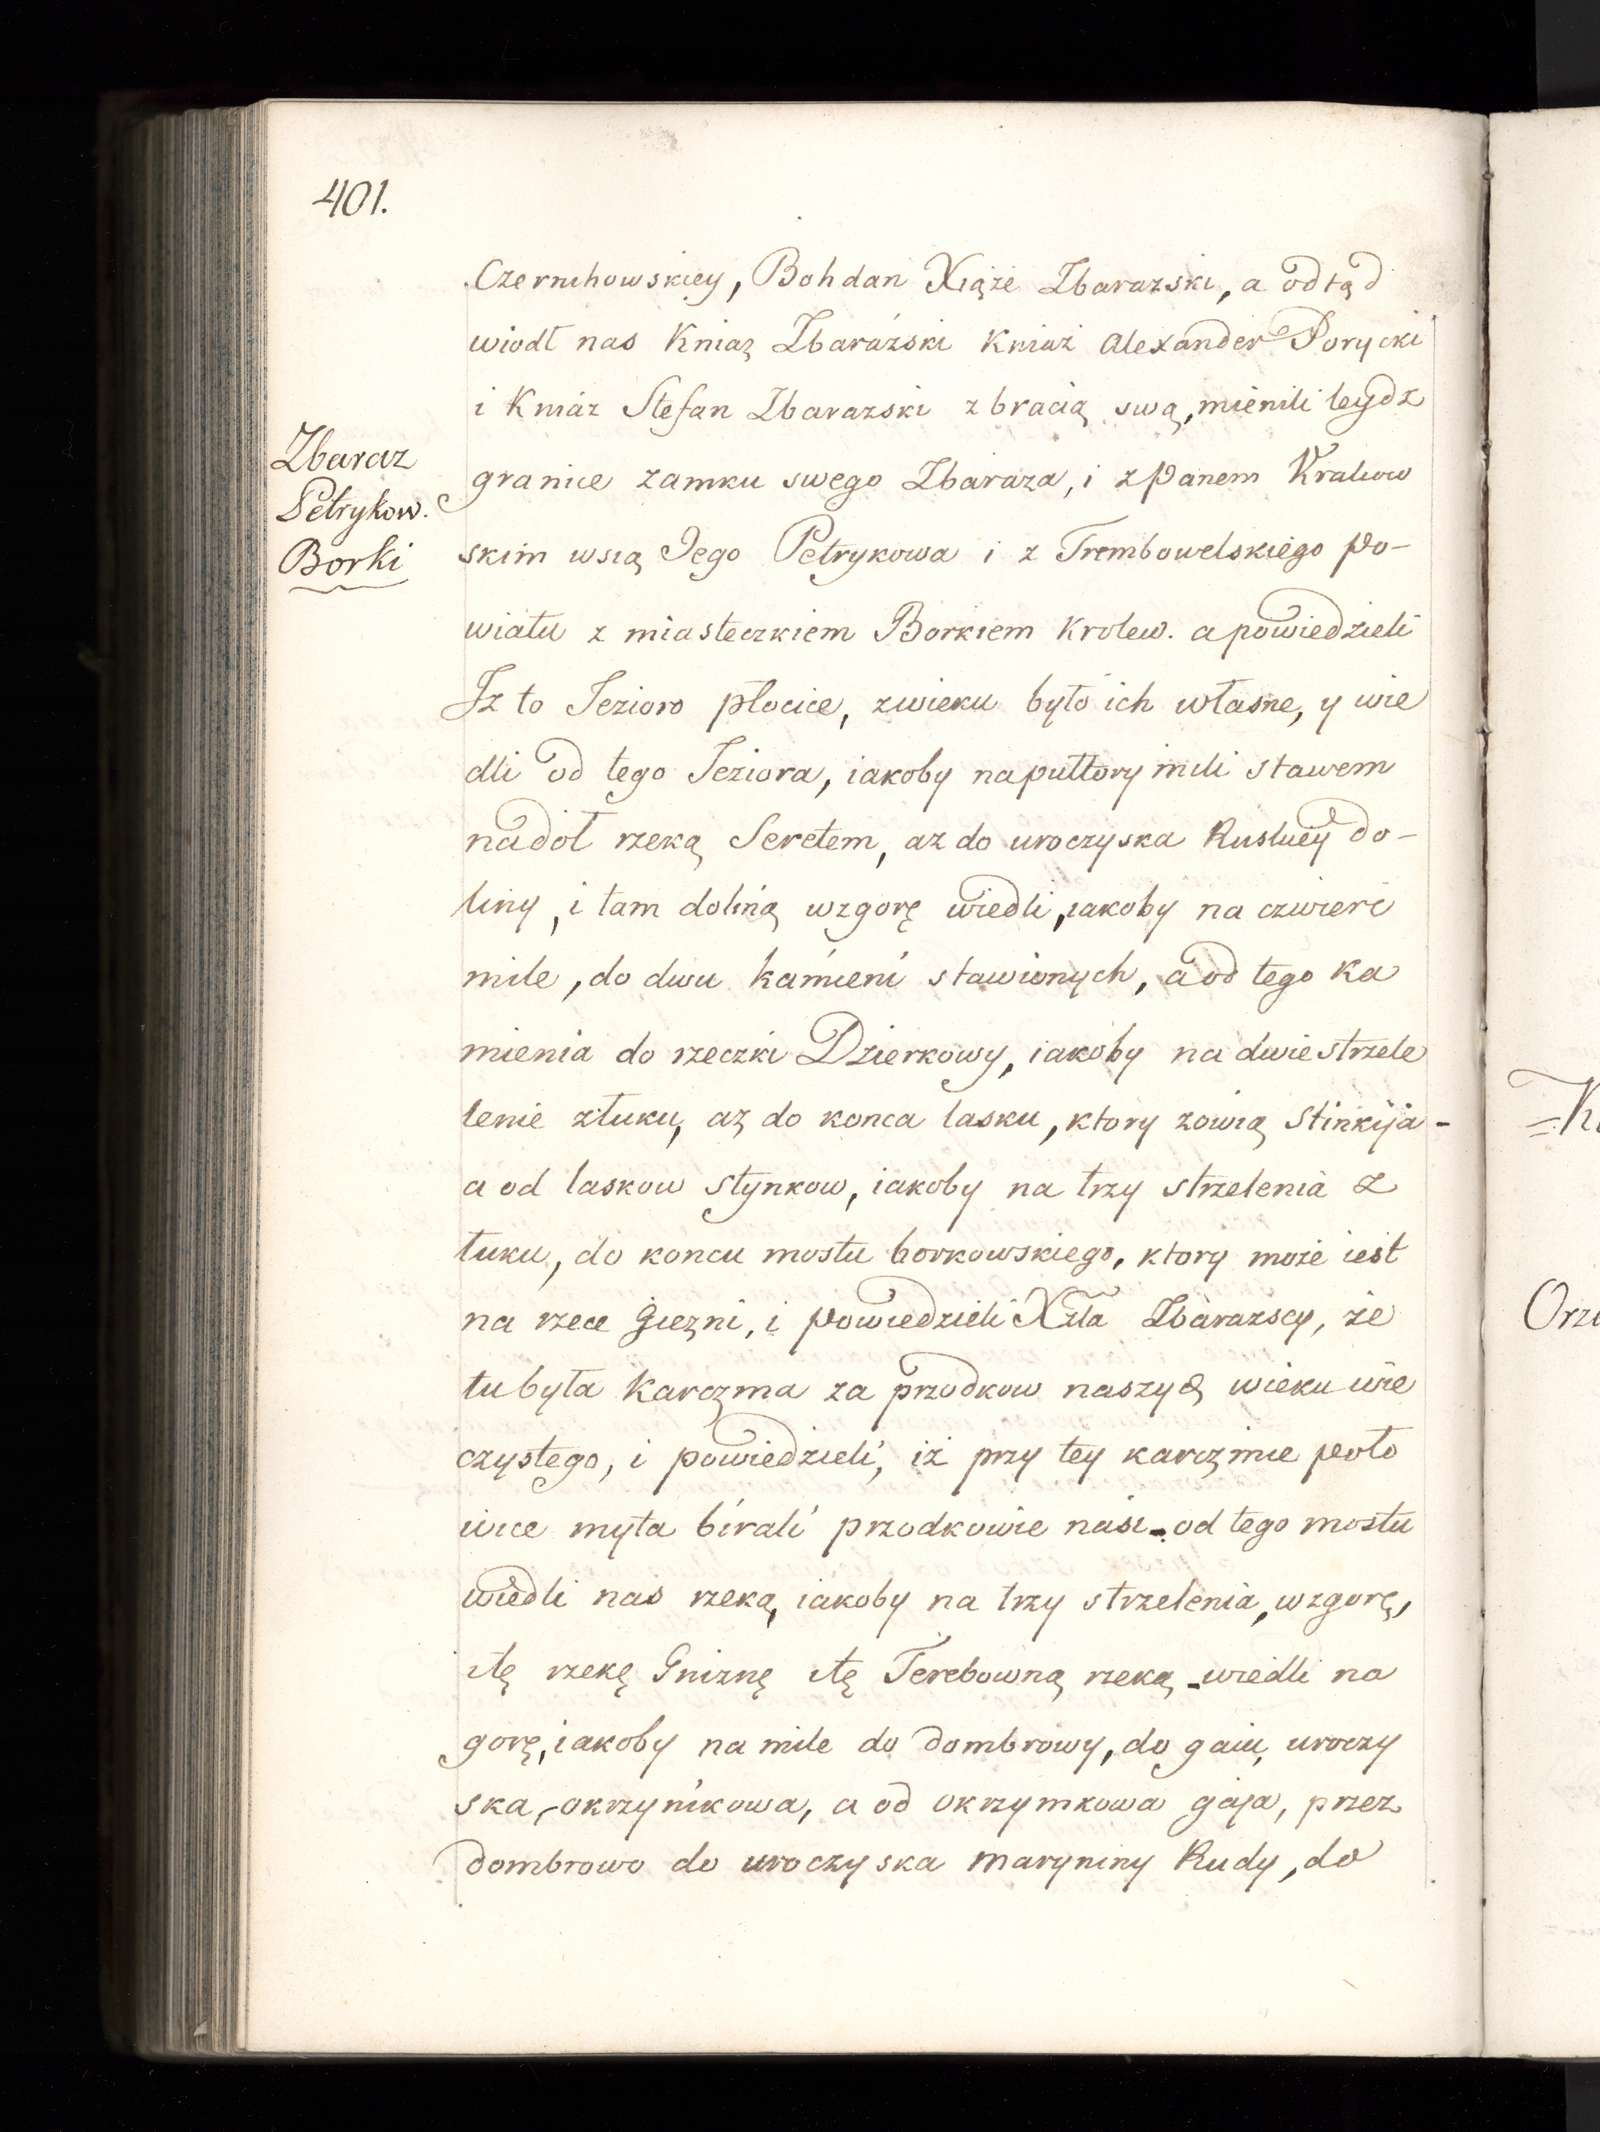 401.
Czernihowskiey, Bohdan Xiąże Zbarazski, a odtąd
wiodł nas Kniaz Zbaráżski Kniaż Alexander Porycki
i Kniáz Stefan Zbarazski z bracią swą, mienili leydz
Zbaraz
Petrykow.
Borki
granice zamku swego Zbaraza, i z Panem Krakow
skim wsią Jego Petrykowa i z Trembowelskiego po-
wiatu z miasteczkiem Borkiem Krolew. a powiedzieli
Jz to Jezioro płocice, zwieku było ich własne, y wie
dli od tego Jeziora, iakoby na pułtory mili stawem
nadół rzeką Seretem, az do uroczyska Ruskiey do-
liny, i tam doliną wzgorę wiedli, iakoby na czwierć
mile, do dwu kamieni stawionych, a od tego Ka
mienia do rzeczki Dzierkowy, iakoby na dwie strzele
lenie złuku, az do konca lasku, ktory zowią Stinkija -
a od laskow Stynkow, iakoby na trzy strzelenia z
łuku, do koncu mostu borkowskiego, ktory może iest
na rzece Gnezni, i powiedzieli Xżta Zbarazscy, że
tu była Karczma za przodkow naszych wieku wie
czystego, i powiedzieli, iż przy tey karczmie poło
wice myta birali przodkowie nasi - od tego mostu
wiedli nas rzeką, iakoby na trzy strzelenia, wzgorę,
ıtę rzekę Gniznę ıtę Terebowną rzeką - wiedli na
gorę, iakoby na mile do Dombrowy, do gaiu, uroczy
ska, okrzynikowa, a od okrzymkowa gaja, przez
Dombrowo do uroczyska Maryniny Rudy, do
Orz